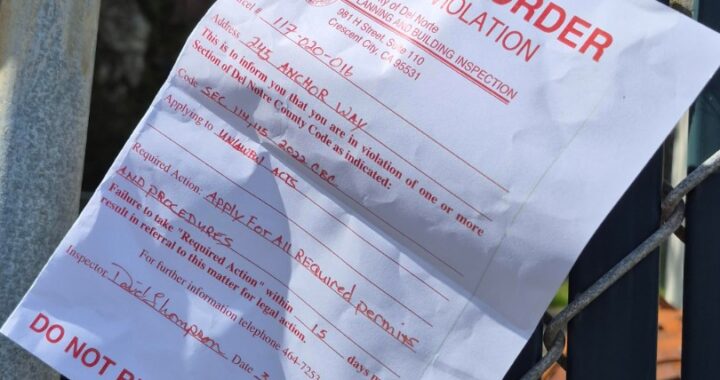 ORDER
VIOLATION
County of Del Norte
PLANNING AND BUILDING INSPECTION
981 H Street, Suite 110
Crescent City, CA 95531
Parcel # 117-020-016
Address 245 ANCHOR WAY
This is to inform you that you are in violation of one or more
Section of Del Notre County Code as indicated:
Code SEC 114, 115 2022 CBC
Applying to UNLAWFUL ACTS
Required Action: Apply For All Required permits
AND PROCEDURES
Failure to take "Required Action" within 15 days may
result in referral to this matter for legal action.
For further information telephone 464-7253
Inspector David Thompson Date 3
DO NOT